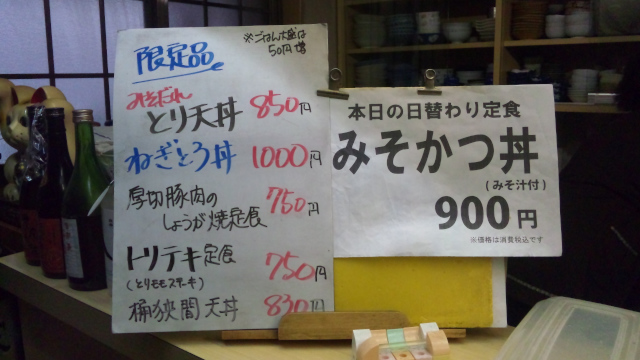 限定品
※ごはん大盛は
50円増
みそだれ
とり天丼 850円
ねぎとろ丼 1000円
厚切豚肉の
しょうが焼定食 750円
トリテキ定食 750円
(とりモモステーキ)
桶狭間天丼 830円
本日の日替わり定食
みそかつ丼
(みそ汁付)
900円
※価格は消費税込です